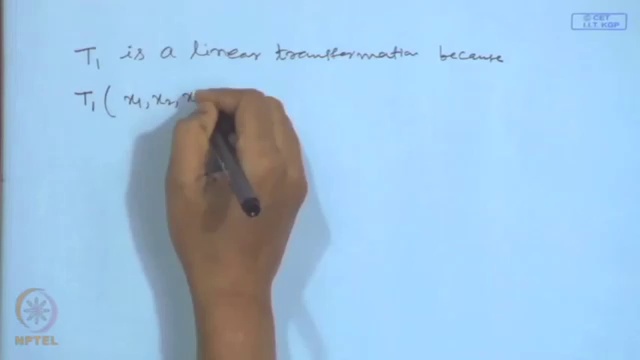 © CET
I.I.T. KGP
T₁ is a linear transformation because
T₁ ( x₁, x₂, x
NPTEL